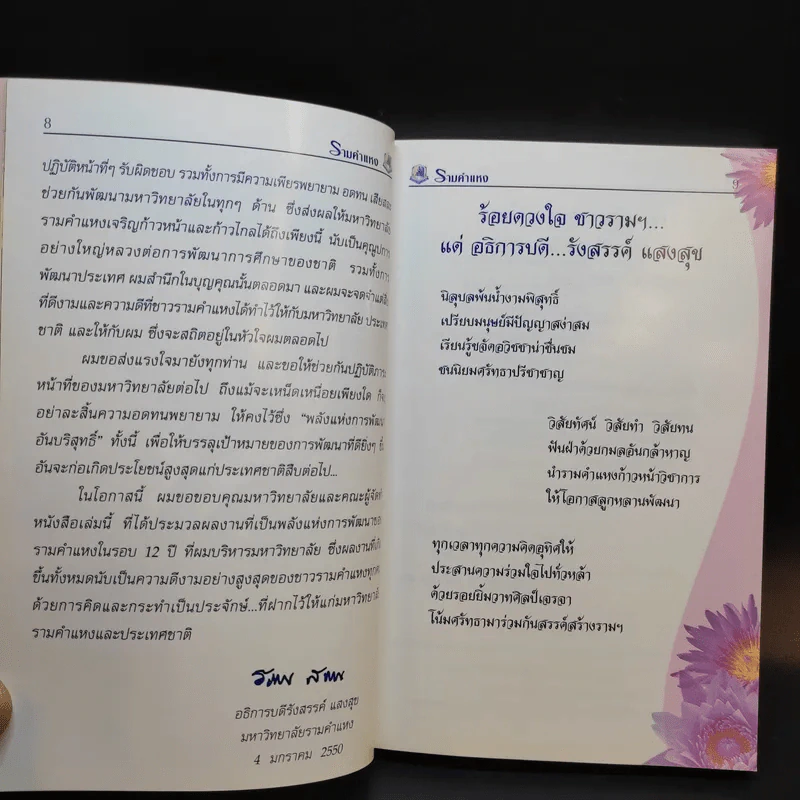 8
รามคำแหง
ปฏิบัติหน้าที่ๆ รับผิดชอบ รวมทั้งการมีความเพียรพยายาม อดทน
ช่วยกันพัฒนามหาวิทยาลัยในทุกๆ ด้าน ซึ่งส่งผลให้มหาวิทยาลัย
รามคำแหงเจริญก้าวหน้าและก้าวไกลได้ถึงเพียงนี้ นับเป็นคุณูปการ
อย่างใหญ่หลวงต่อการพัฒนาการศึกษาของชาติ รวมทั้งการ
พัฒนาประเทศ ผมสำนึกในบุญคุณนั้นตลอดมา และผมจะจดจำแต่
ที่ดีงามและความดีที่ชาวรามคำแหงได้ทำไว้ให้กับมหาวิทยาลัย ประเทศ
ชาติ และให้กับผม ซึ่งจะสถิตอยู่ในหัวใจผมตลอดไป
ผมขอส่งแรงใจมายังทุกท่าน และขอให้ช่วยกันปฏิบัติ
หน้าที่ของมหาวิทยาลัยต่อไป ถึงแม้จะเหน็ดเหนื่อยเพียงใด
อย่าละสิ้นความอดทนพยายาม ให้คงไว้ซึ่ง “พลังแห่งการพัฒนา
อันบริสุทธิ์” ทั้งนี้ เพื่อให้บรรลุเป้าหมายของการพัฒนาที่ดียิ่งๆ
อันจะก่อเกิดประโยชน์สูงสุดแก่ประเทศชาติสืบต่อไป...
ในโอกาสนี้ ผมขอขอบคุณมหาวิทยาลัยและคณะผู้จัดทำ
หนังสือเล่มนี้ ที่ได้ประมวลผลงานที่เป็นพลังแห่งการพัฒนาของ
รามคำแหงในรอบ 12 ปี ที่ผมบริหารมหาวิทยาลัย ซึ่งผลงานที่
ขึ้นทั้งหมดนับเป็นความดีงามอย่างสูงสุดของชาวรามคำแหงทุก
ด้วยการคิดและกระทำเป็นประจักษ์...ที่ฝากไว้ให้แก่มหาวิทยาลัย
รามคำแหงและประเทศชาติ
อธิการบดีรังสรรค์ แสงสุข
มหาวิทยาลัยรามคำแหง
4 มกราคม 2550
รามคำแหง
9
ร้อยดวงใจ ชาวรามฯ...
แด่ อธิการบดี...รังสรรค์ แสงสุข
นิลุบลพ้นน้ำงามพิสุทธิ์
เปรียบมนุษย์มีปัญญาสง่าสม
เรียนรู้ขจัดอวิชชาน่าชื่นชม
ชนนิยมศรัทธาปรีชาชาญ
วิสัยทัศน์ วิสัยทำ วิสัยทน
ฟันฝ่าด้วยกมลอันกล้าหาญ
นำรามคำแหงก้าวหน้าวิชาการ
ให้โอกาสลูกหลานพัฒนา
ทุกเวลาทุกความคิดอุทิศให้
ประสานความร่วมใจไปทั่วหล้า
ด้วยรอยยิ้มวาทศิลป์เจรจา
โน้มศรัทธามาร่วมกันสรรค์สร้างรามฯ